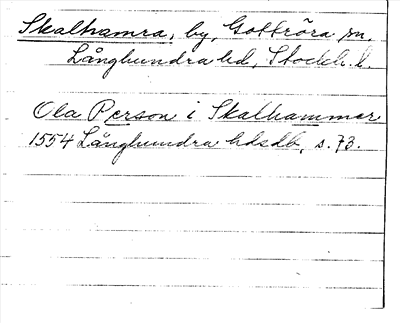 Skalhamra, by, Gottröra sn.
Långhundra hd, Stockh. l.
Ola Person i Skalhammar
1554 Långhundra hdsdb, s. 73.